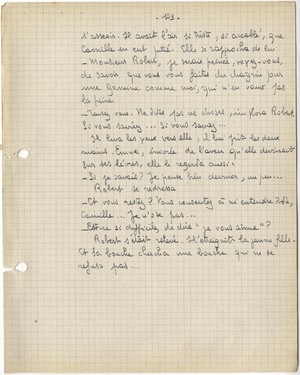 - 123 -
s'asseoir. Il avait l'air si triste, si accablé, que
Camille en eut pitié. Elle se rapprocha de lui.
- Monsieur Robert, je suis peinée, voyez-vous,
de savoir que vous vous faites du chagrin pour
une gamine comme moi, qui n'en vaut pas
la peine.
- Taisez-vous. Ne dites pas ces choses, implora Robert.
Si vous saviez... Si vous saviez...
Il leva les yeux vers elle, il lui prit les deux
mains. Émue, de l'aveu qu'elle devinait
sur ses lèvres, elle le regarda aussi :
- Si je savais? Je peux bien deviner, un peu...
Robert se redressa
- Et vous restez? Vous consentez à m'entendre? Ah,
Camille... Je n'ose pas...
- Est-ce si difficile de dire "je vous aime"?
Robert s'était relevé. Il étreignit la jeune fille.
Et sa bouche chercha une bouche qui ne se
refusa pas...